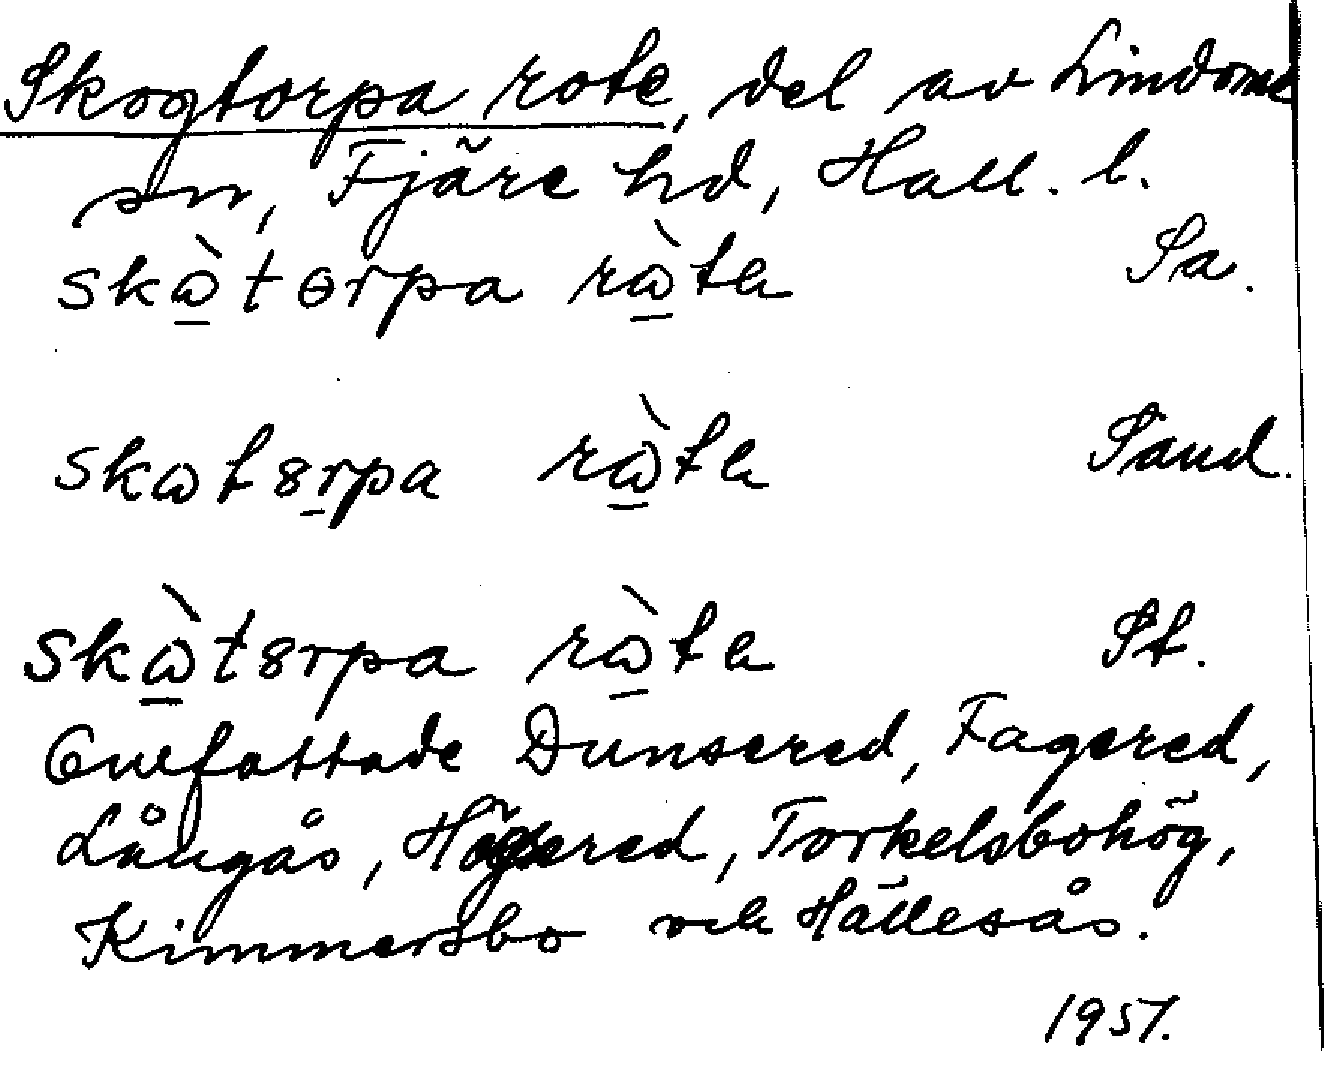 Skogtorpa rote, del av Lindome
sn, Fjäre hd, Hall. l.
skὼ̱tɵrpa rὼ̱ta Sa.
skωt8r̠pa rὼ̱ta Sand.
skὼ̱t8rpa rὼ̱ta St.
Omfattade Dunsered, Fagered,
Långås, Högsered, Torkelsbohög,
Kimmersbo och Hällesås.
1957.